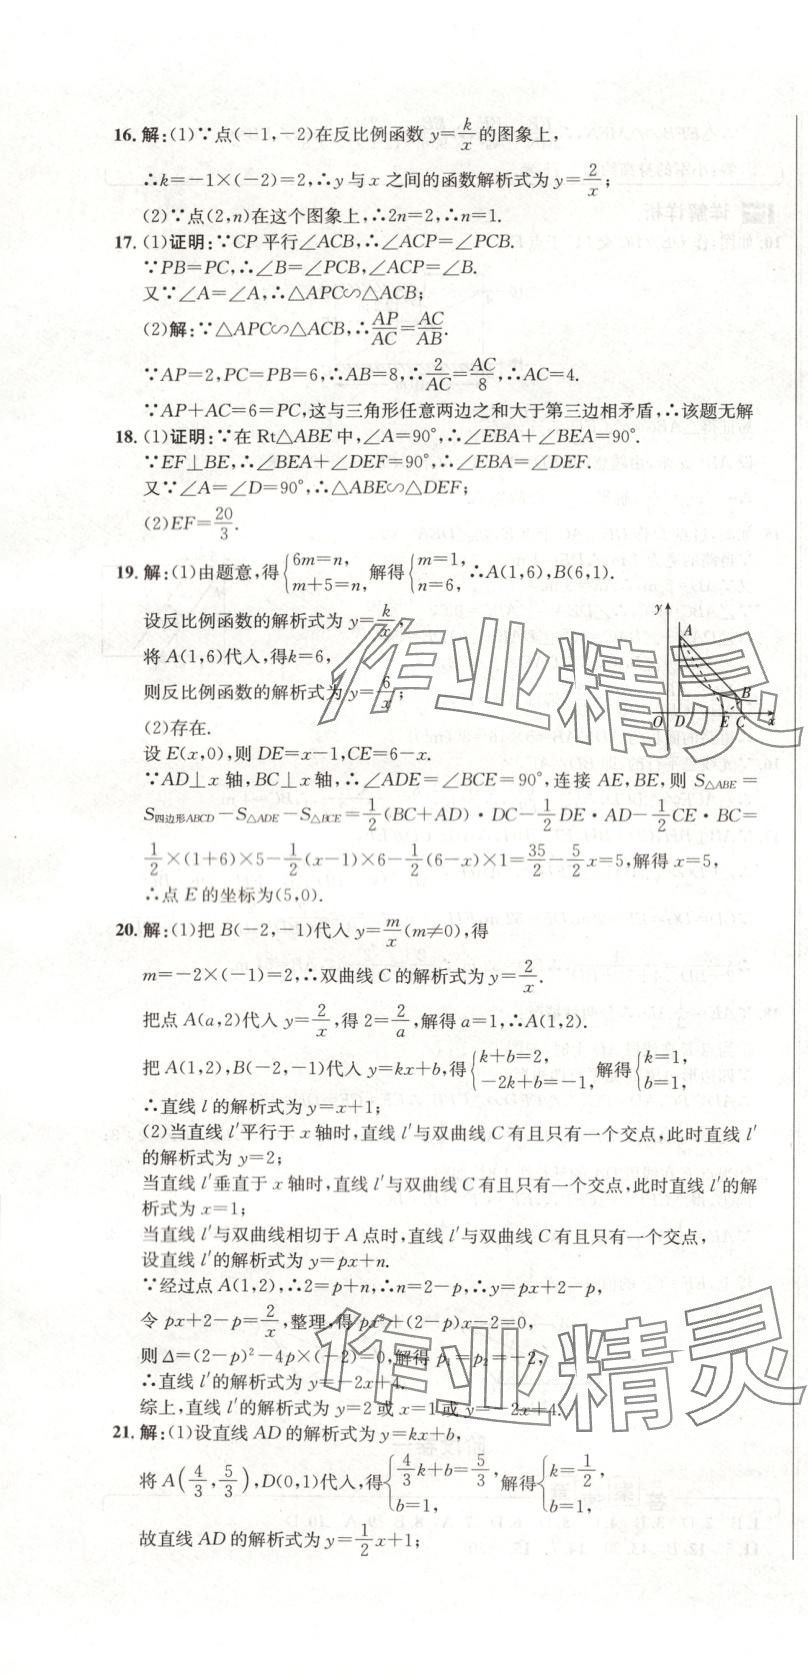 16. 解:(1)∵点(-1,-2)在反比例函数 y=k/x 的图象上,
∴k=-1×(-2)=2,∴y 与 x 之间的函数解析式为 y=2/x;
(2)∵点(2,n)在这个图象上,∴2n=2,∴n=1.
17. (1)证明:∵CP 平行∠ACB,∴∠ACP=∠PCB.
∵PB=PC,∴∠B=∠PCB,∠ACP=∠B.
又∵∠A=∠A,∴△APC∽△ACB;
(2)解:∵△APC∽△ACB,∴AP/AC=AC/AB.
∵AP=2,PC=PB=6,∴AB=8,∴2/AC=AC/8,∴AC=4.
∵AP+AC=6=PC,这与三角形任意两边之和大于第三边相矛盾,∴该题无解
18. (1)证明:∵在 Rt△ABE 中,∠A=90°,∴∠EBA+∠BEA=90°.
∵EF⊥BE,∴∠BEA+∠DEF=90°,∴∠EBA=∠DEF.
又∵∠A=∠D=90°,∴△ABE∽△DEF;
(2)EF=20/3.
19. 解:(1)由题意,得{6m=n, m+5=n, 解得{m=1, n=6, ∴A(1,6),B(6,1).
设反比例函数的解析式为 y=k/x,
将 A(1,6)代人,得k=6,
则反比例函数的解析式为 y=6/x;
(2)存在.
y A B O D E C x
设 E(x,0),则 DE=x-1,CE=6-x.
∵AD⊥x 轴,BC⊥x 轴,∴∠ADE=∠BCE=90°,连接 AE,BE,则 S△ABE=
S四边形ABCD-S△ADE-S△BCE=1/2(BC+AD)·DC-1/2DE·AD-1/2CE·BC=
1/2×(1+6)×5-1/2(x-1)×6-1/2(6-x)×1=35/2-5/2x=5,解得 x=5,
∴点 E 的坐标为(5,0).
20. 解:(1)把 B(-2,-1)代人 y=m/x(m≠0),得
m=-2×(-1)=2,∴双曲线 C 的解析式为 y=2/x.
把点 A(a,2)代人 y=2/x,得 2=2/a,解得 a=1,∴A(1,2).
把 A(1,2),B(-2,-1)代人 y=kx+b,得{k+b=2, -2k+b=-1, 解得{k=1, b=1,
∴直线 l 的解析式为 y=x+1;
(2)当直线 l′平行于 x 轴时,直线 l′与双曲线 C 有且只有一个交点,此时直线 l′
的解析式为 y=2;
当直线 l′垂直于 x 轴时,直线 l′与双曲线 C 有且只有一个交点,此时直线 l′的解
析式为 x=1;
当直线 l′与双曲线相切于 A 点时,直线 l′与双曲线 C 有且只有一个交点,
设直线 l′的解析式为 y=px+n.
∵经过点 A(1,2),∴2=p+n,∴n=2-p,∴y=px+2-p,
令 px+2-p=2/x,整理,得 px²+(2-p)x-2=0,
则 Δ=(2-p)²-4p×(-2)=0,解得 p₁=p₂=-2,
∴直线 l′的解析式为 y=-2x+4.
综上,直线 l′的解析式为 y=2 或 x=1 或 y=-2x+4.
21. 解:(1)设直线 AD 的解析式为 y=kx+b,
将 A(4/3,5/3),D(0,1)代人,得{4/3k+b=5/3, b=1, 解得{k=1/2, b=1,
故直线 AD 的解析式为 y=1/2x+1;
作业精灵
作业精灵